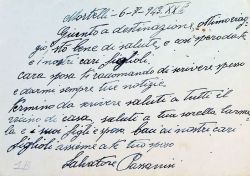 Mortelli - 6-7-943 XXI
Giunto a destinazione, ottimo viag
gio, sto bene di salute, e così spero di te
e i nostri cari figlioli.
cara sposa ti racomando di scrivere spesso
e darmi sempre tue notizie.
termino da scrivere saluti a tutti il
vicino di casa, saluti a tua sorella
e i suoi figli e sposo baci ai nostri cari
figlioli assieme a te tuo sposo
Salvatore Passanini